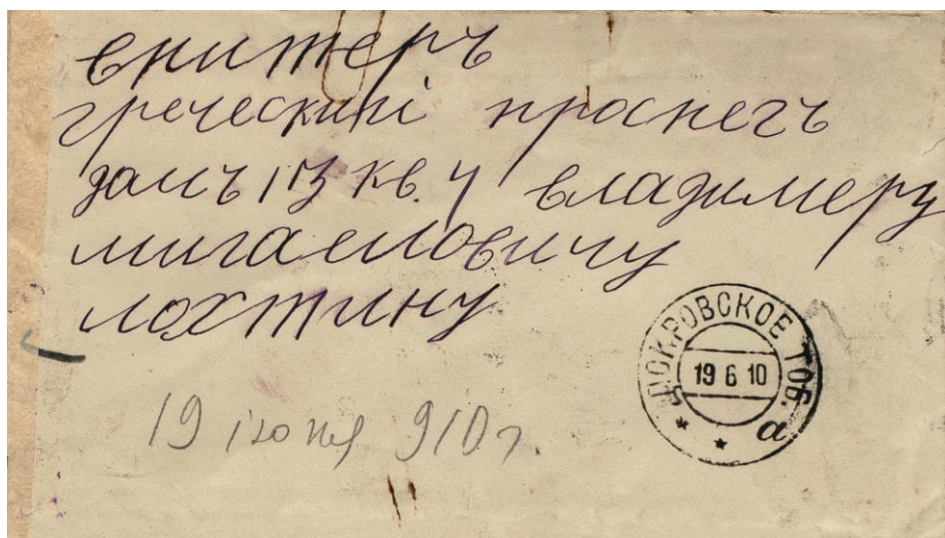 внитеръ
греческий проспегъ
домъ 13 кв. 4 владимеру
мигаеловичу
лохтину
ПОКРОВСКОЕ ТОБ.
19 6 10
а
19 іюня 910 г.